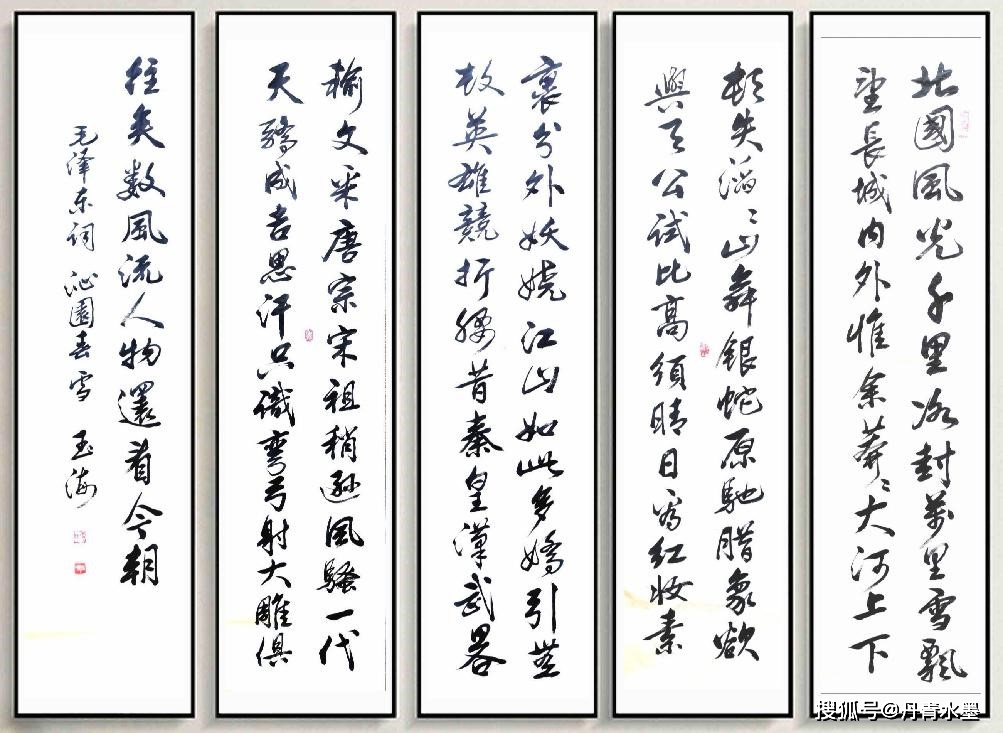 北國風光千里冰封萬里雪飄
望長城内外惟余莽〻大河上下
頓失滔〻山舞銀蛇原馳腊象欲
與天公試比高須晴日看红妆素
裹分外妖嬈江山如此多嬌引無
数英雄競折腰昔秦皇漢武畧
輸文采唐宗宋祖稍遜風騷一代
天驕成吉思汗只識彎弓射大雕俱
往矣数風流人物還看今朝
毛泽东词 沁園春雪 玉海
搜狐号@丹青水墨